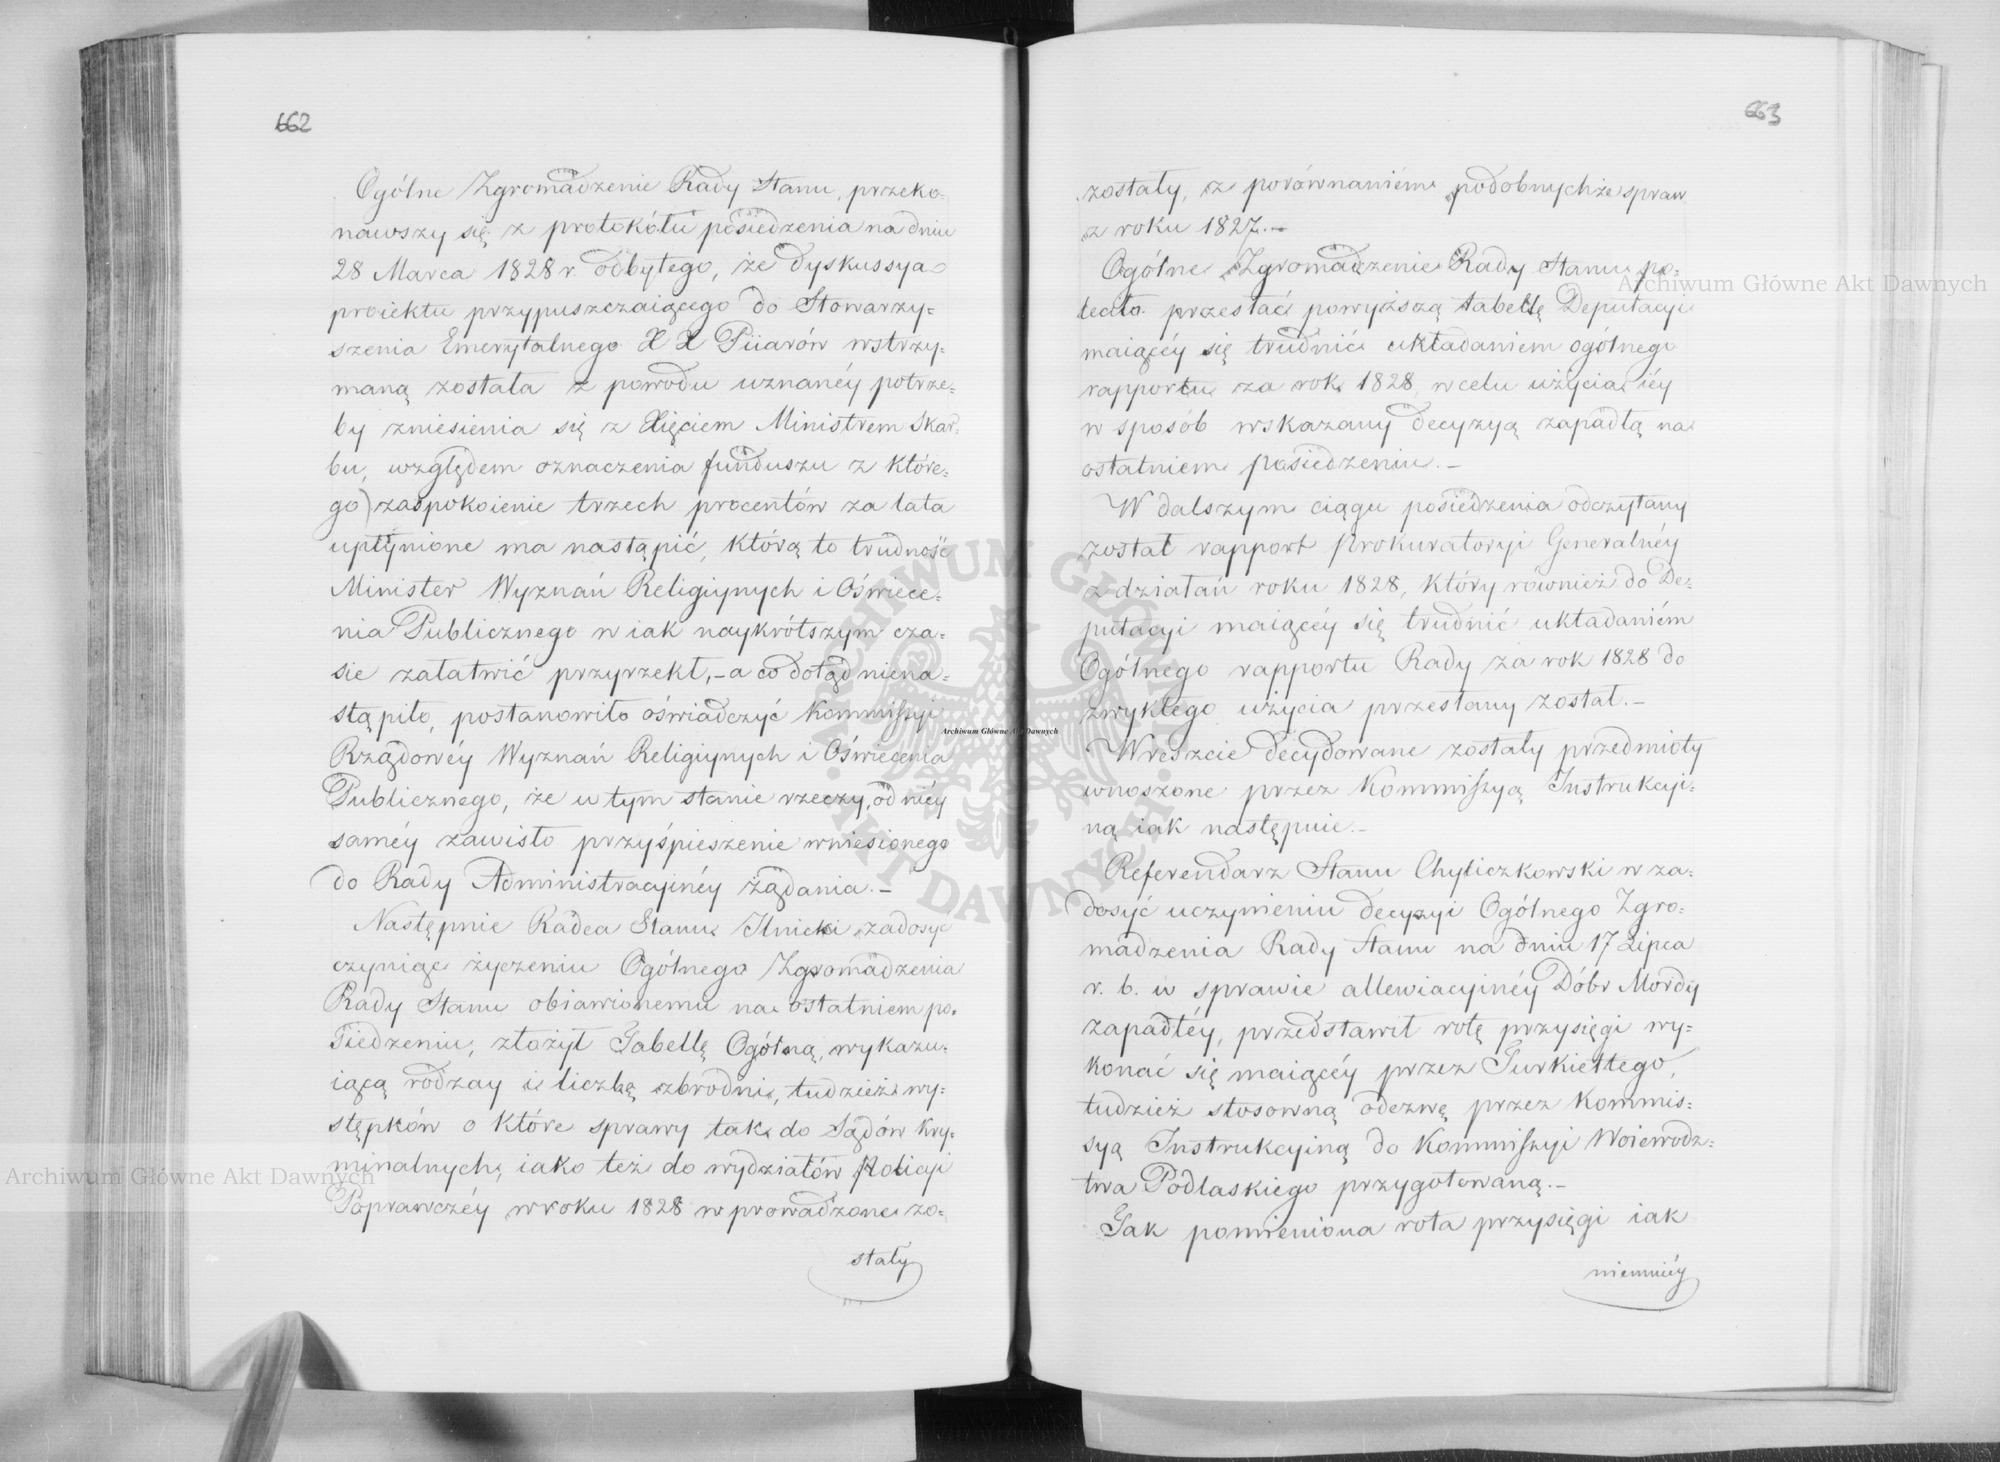 662
Ogólne Zgromadzenie Rady Stanu, przeko=
nawszy się z protokółu posiedzenia na dniu
28 Marca 1828 r. odbytego, że dyskussya
proiektu przypuszczaiącego do Stowarzy=
szenia Emerytalnego X X Piiarów wstrzy=
maną została z powodu uznanéy potrze=
by zniesienia się z Xięciem Ministrem Skar=
bu, względem oznaczenia funduszu z które=
go zaspokoienie trzech procentów za lata
upłynione ma nastąpić, którą to trudność
Minister Wyznań Religiynych i Oświece=
nia Publicznego w iak naykrótszym cza=
sie załatwić przyrzekł, – a co dotąd niena=
stąpiło, postanowiło oświadczyć Kommissyi
Rządowéy Wyznań Religiynych i Oświecenia
Publicznego, że w tym stanie rzeczy, od niéy
saméy zawisło przyśpieszenie wniesionego
do Rady Administracyinéy żądania. –
Następnie Radca Stanu Ilnicki zadosyć
czyniąc życzeniu Ogólnego Zgromadzenia
Rady Stanu obiawionemu na ostatniem po=
siedzeniu, złożył Tabellę Ogólną, wykazu=
iącą rodzay i liczbę zbrodni, tudzież wy=
stępków o które sprawy tak do Sądów Kry=
minalnych, iako też do wydziałów Policyi
Poprawczéy w roku 1828 wprowadzone zo=
stały
663
zostały, z porównaniem podobnychże spraw
z roku 1827. –
Ogólne Zgromadzenie Rady Stanu po=
leciło przesłać powyższą tabellę Deputacyi
maiącéy się trudnić układaniem ogólnego
rapportu za rok 1828, w celu użycia iéy
w sposób wskazany decyzyą zapadłą na
ostatniem posiedzeniu. –
W dalszym ciągu posiedzenia odczytany
został rapport Prokuratoryi Generalnéy
z działań roku 1828, który również do De=
putacyi maiącéy się trudnić układaniém
Ogólnego rapportu Rady za rok 1828 do
zwykłego użycia przesłany został. –
Wreszcie decydowane zostały przedmioty
wnoszone przez Kommissyą Instrukcyi=
ną iak następuie. –
Referendarz Stanu Chyliczkowski w za=
dosyć uczynieniu decyzyi Ogólnego Zgro=
madzenia Rady Stanu na dniu 17 Lipca
r. b. w sprawie allewiacyinéy Dóbr Mordy
zapadłéy, przedstawił rotę przysięgi wy=
konać się maiącéy przez Turkiełłego,
tudzież stosowną odezwę przez Kommis=
syą Instrukcyiną do Kommissyi Woiewódz=
twa Podlaskiego przygotowaną. –
Tak pomieniona rota przysięgi iak
niemniéy
Archiwum Główne Akt Dawnych
Archiwum Główne Akt Dawnych
Archiwum Główne Akt Dawnych
ARCHIWUM GŁÓWNE
AKT DAWNYCH